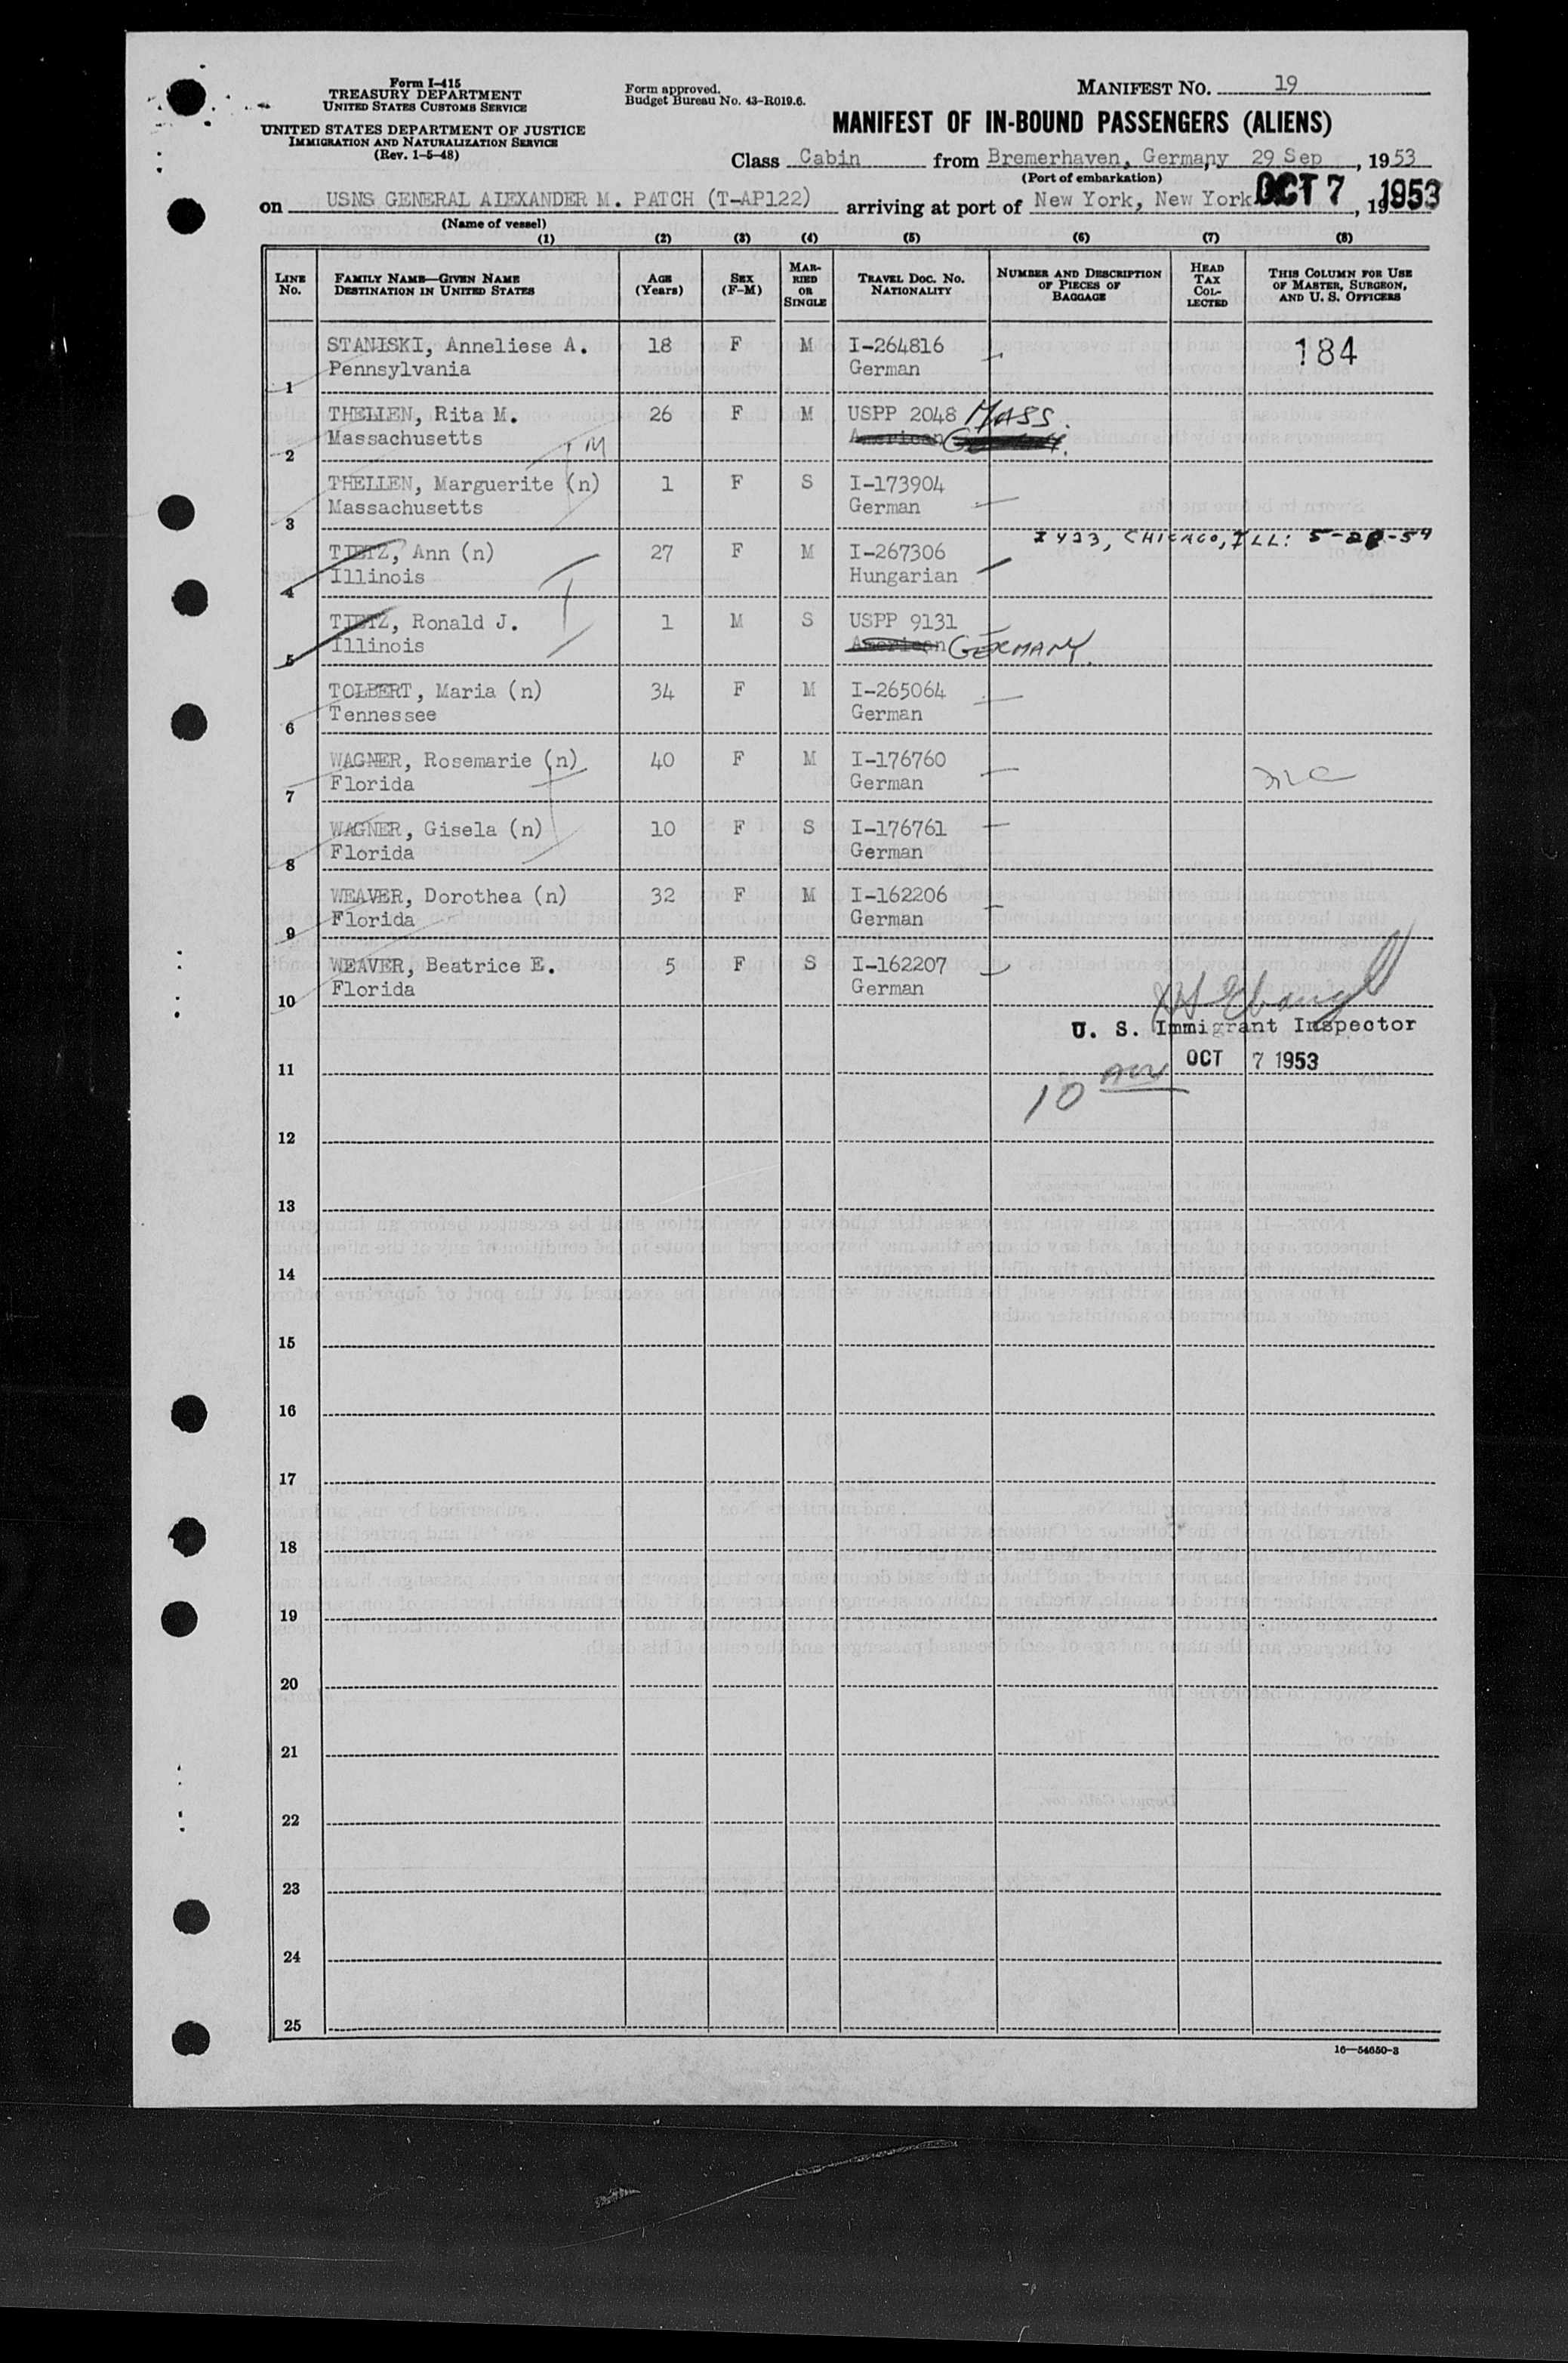 Form I-415
TREASURY DEPARTMENT
UNITED STATES CUSTOMS SERVICE
UNITED STATES DEPARTMENT OF JUSTICE
IMMIGRATION AND NATURALIZATION SERVICE
(Rev. 1-5-48)
Form approved.
Budget Bureau No. 43-R019.6.
MANIFEST NO. 19
MANIFEST OF IN-BOUND PASSENGERS (ALIENS)
Class Cabin from Bremerhaven, Germany 29 Sep, 1953
(Port of embarkation)
on USNS GENERAL ALEXANDER M. PATCH (T-AP122) arriving at port of New York, New York OCT 7, 1953
(Name of vessel)
(1) (2) (3) (4) (5) (6) (7) (8)
LINE No.
FAMILY NAME—GIVEN NAME
DESTINATION IN UNITED STATES
AGE (Years)
SEX (F-M)
MARRIED OR SINGLE
TRAVEL DOC. NO.
NATIONALITY
NUMBER AND DESCRIPTION OF PIECES OF BAGGAGE
HEAD TAX COLLECTED
THIS COLUMN FOR USE OF MASTER, SURGEON, AND U. S. OFFICERS
STANISKI, Anneliese A. 18 F M I-264816 184
1 Pennsylvania German
THELLEN, Rita M. 26 F M USPP 2048 MASS.
2 Massachusetts American
TM
THELLEN, Marguerite (n) 1 F S I-173904
3 Massachusetts German
I 423, CHICAGO, ILL: 5-28-54
TIETZ, Ann (n) 27 F M I-267306
4 Illinois Hungarian
TIETZ, Ronald J. 1 M S USPP 9131
5 Illinois American GERMANY.
TOLBERT, Maria (n) 34 F M I-265064
6 Tennessee German
WAGNER, Rosemarie (n) 40 F M I-176760
7 Florida German
WAGNER, Gisela (n) 10 F S I-176761
8 Florida German
WEAVER, Dorothea (n) 32 F M I-162206
9 Florida German
WEAVER, Beatrice E. 5 F S I-162207
10 Florida German
U. S. Immigrant Inspector
OCT 7 1953
10
11
12
13
14
15
16
17
18
19
20
21
22
23
24
25
16—54650-3